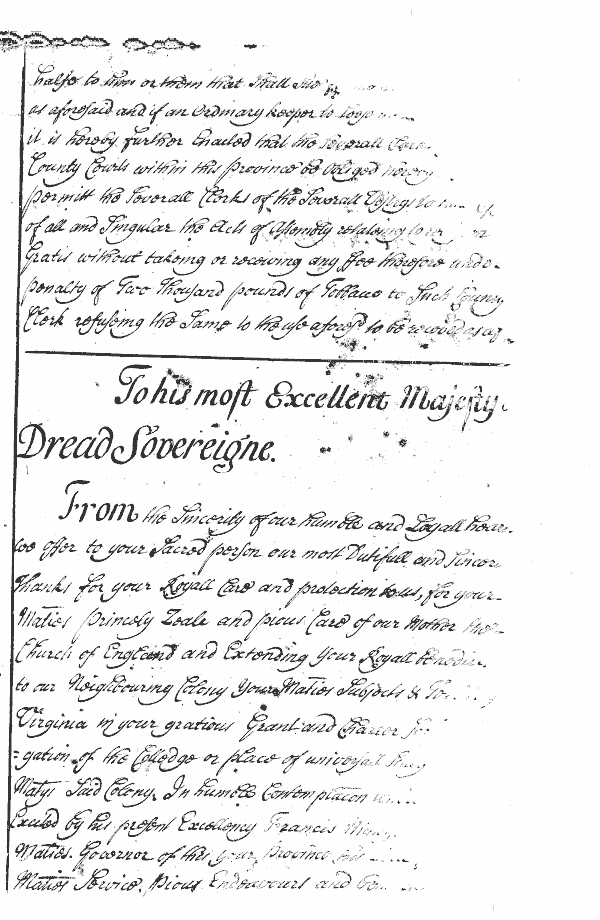 halfe to him or them that shall
as aforesaid and if an Ordinary keeper to
it is hereby further Enacted that the Severall Clerks
County Courts within this province be obliged hereby
permitt the Severall Clerks of the Severall
of all and Singular the Acts of Assembly relateing to
Gratis without takeing or receiving any ffee therefore unde
penalty of Two Thousand pounds of Tobacco to Such County
Clerk refuseing the Same to the use aforesd to be recovd as af
To his most Excellent Majesty.
Dread Sovereigne.
From the Sincerity of our humble and Loyall hearts
we offer to your Sacred person our most Dutifull and Sincere
Thanks for your Royall Care and protection to us, for your
Maties princely Zeale and pious Care of our Mother the
Church of England and Extending your Royall
to our Neighbouring Colony your Maties Subjects &
Virginia in your gratious Grant and Charter for
=gation of the Colledge or place of universall
Matys Said Colony, In humble Contemplacon
Excited by his present Excellency Francis
Maties Governor of this your Province his
Maties Service, Pious Endeavours and